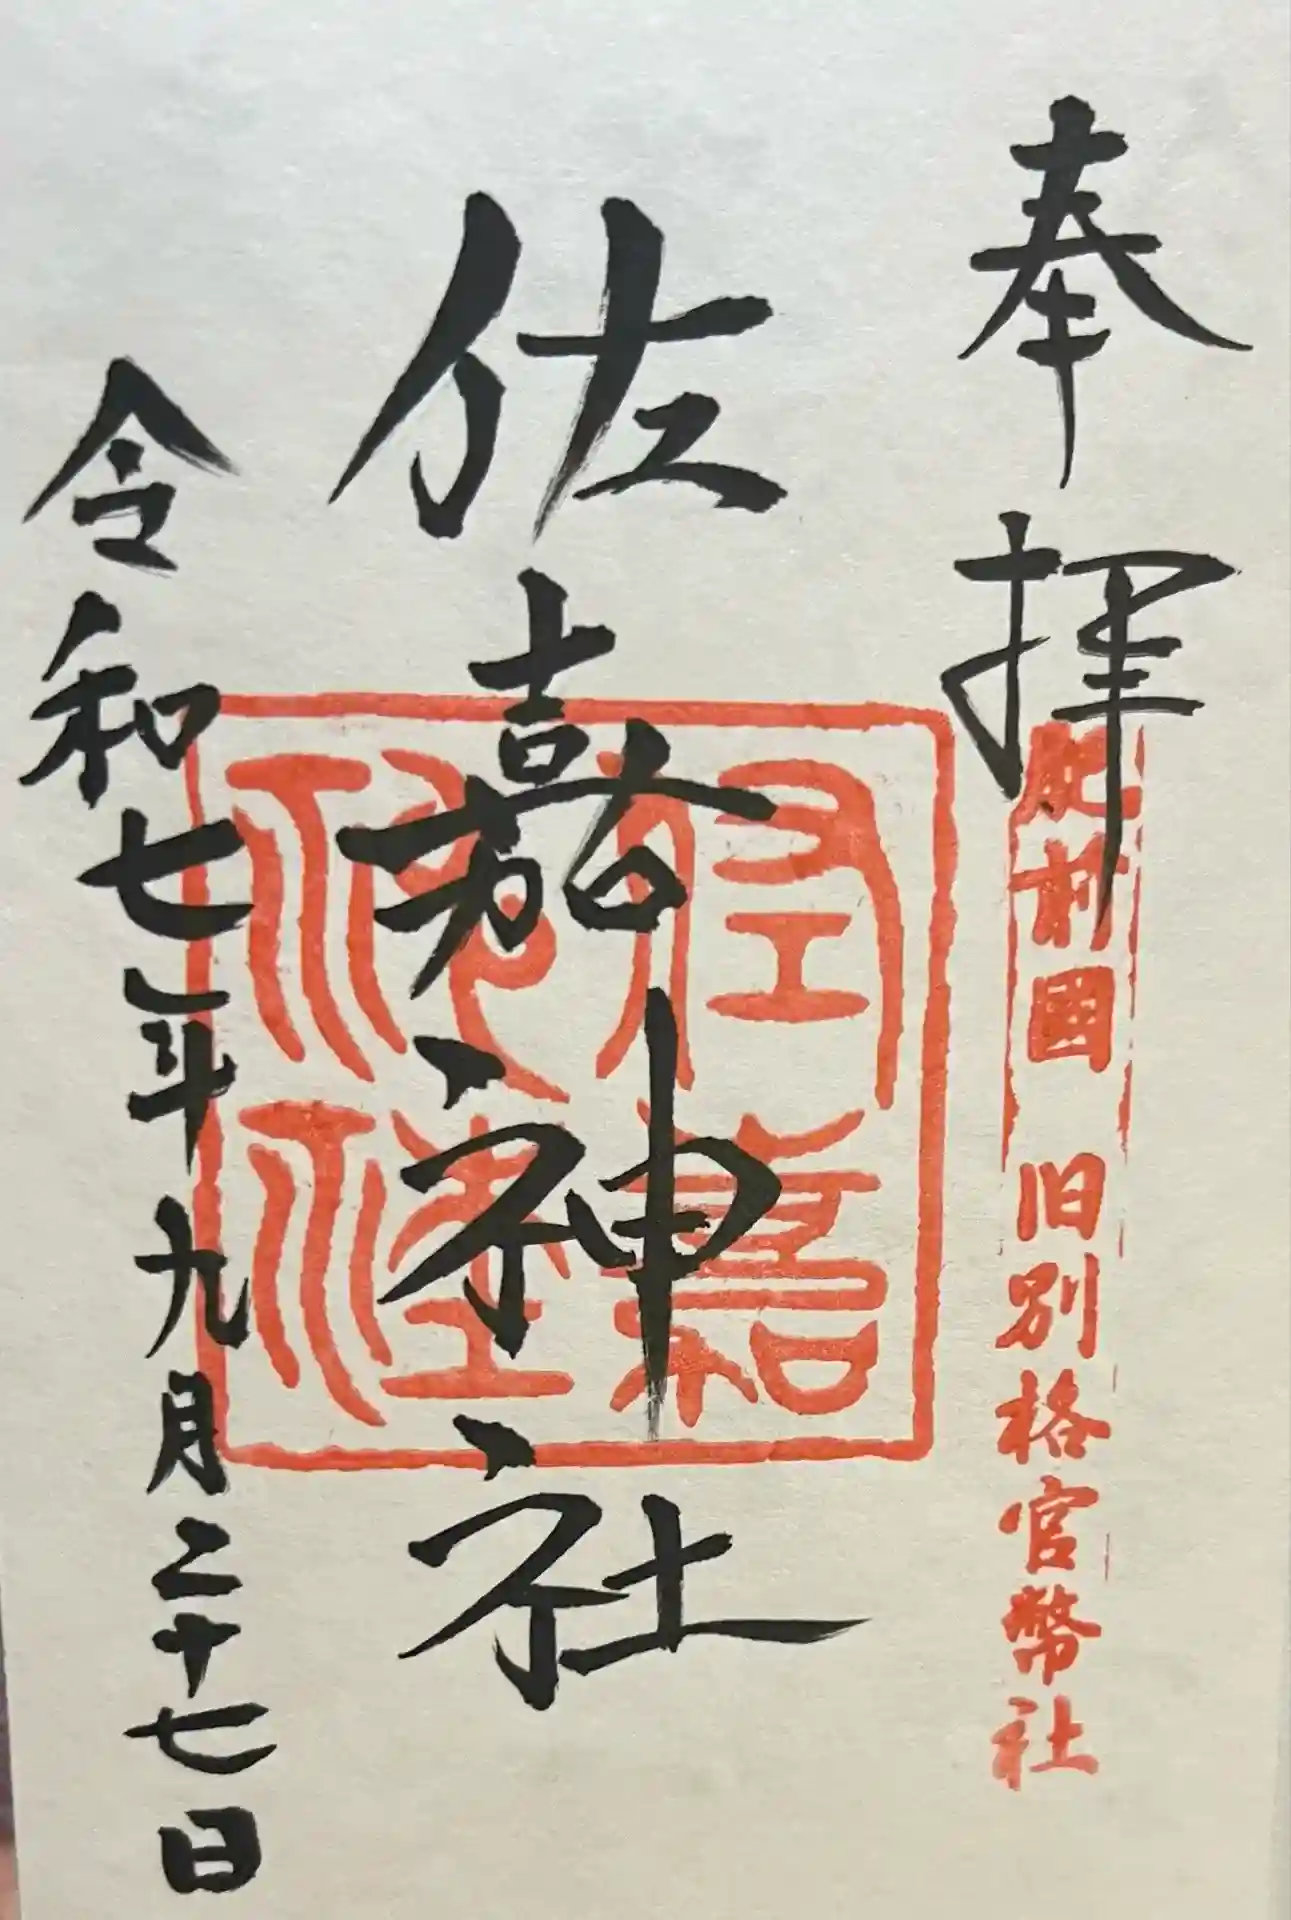 奉拝
肥前國
旧別格官幣社
佐嘉神社
佐嘉神社
令和七年九月二十七日